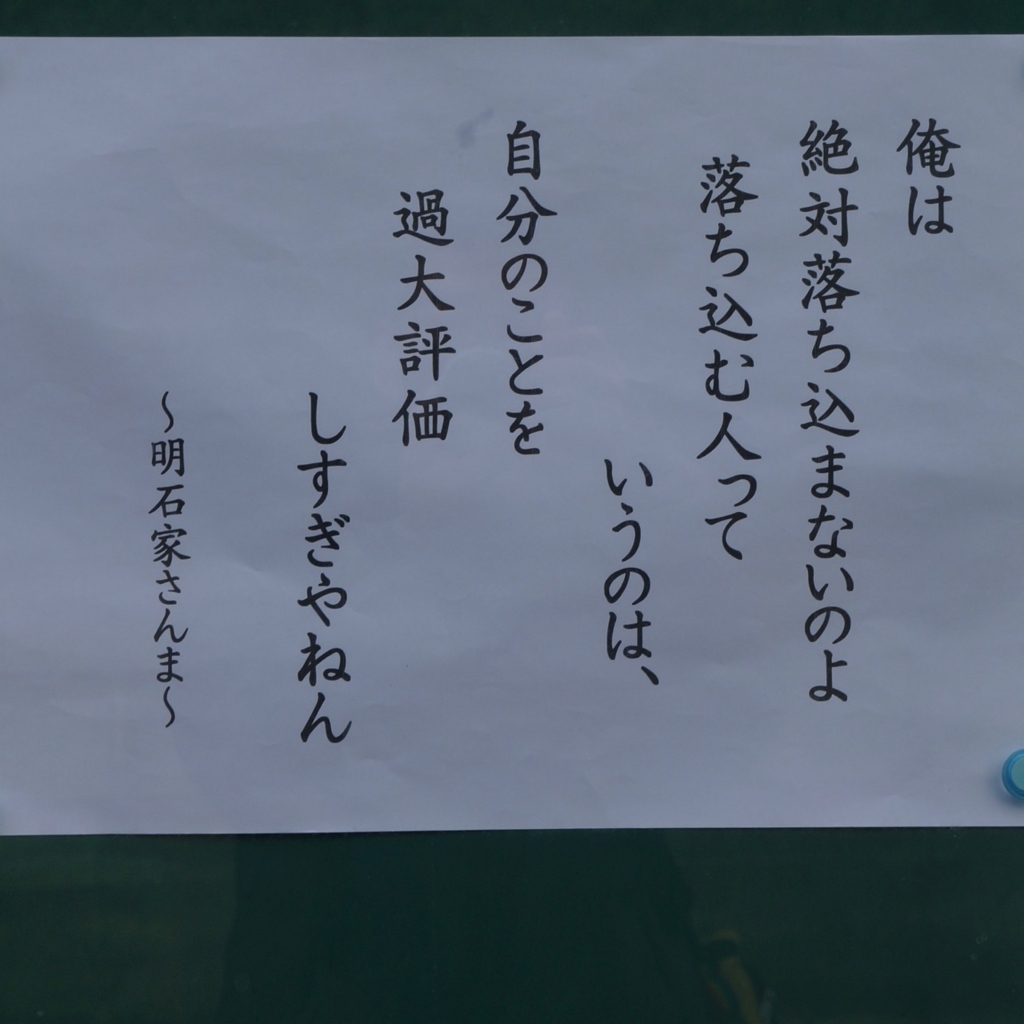 俺は
絶対落ち込まないのよ
落ち込む人って
いうのは、
自分のことを
過大評価
しすぎやねん
～明石家さんま～